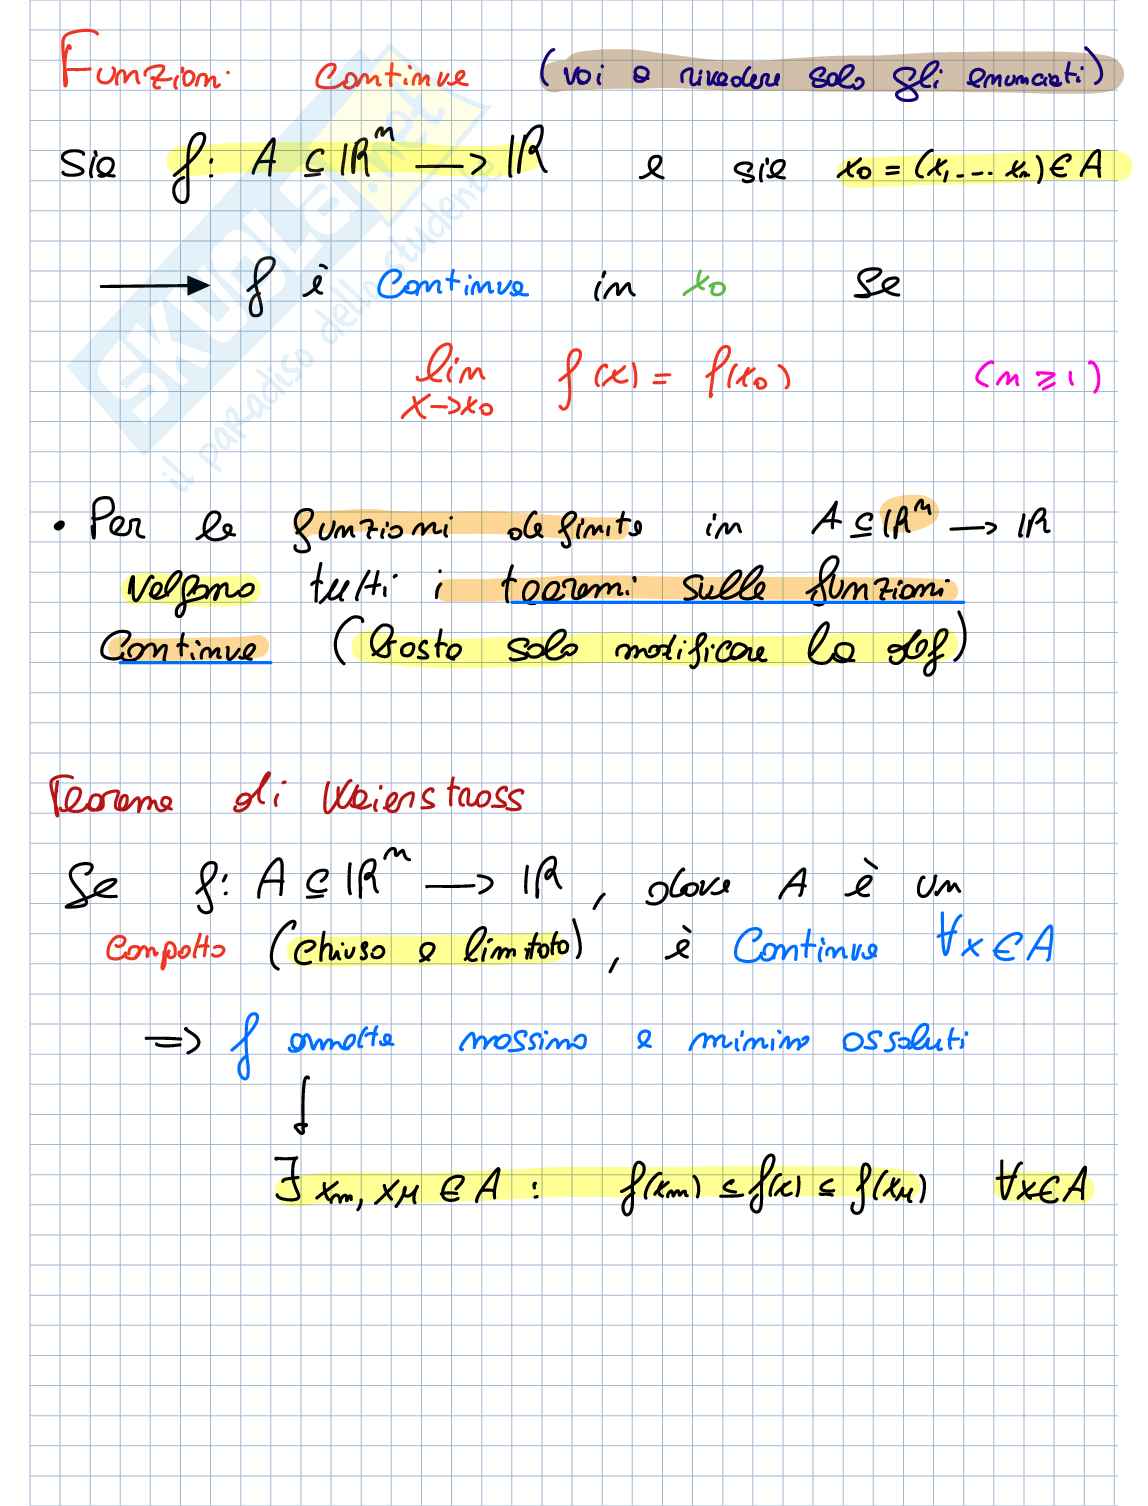 Funzioni Continue (vai a rivedere solo gli enunciati)
Sia f: A ⊆ ℝⁿ → ℝ e sia x₀ = (x₁ ... xₙ) ∈ A
→ f è Continua in x₀ Se
lim f(x) = f(x₀) (n ≥ 1)
x→x₀
• Per le funzioni definite in A ⊆ ℝⁿ → ℝ
Valgono tutti i teoremi sulle funzioni
Continue (basta solo modificare la def)
Teorema di Weierstrass
Se f: A ⊆ ℝⁿ → ℝ, dove A è un
Compatto (chiuso e limitato), è Continua ∀x ∈ A
⇒ f ammette massimo e minimo assoluti
↓
∃ xₘ, x_M ∈ A : f(xₘ) ≤ f(x) ≤ f(x_M) ∀x ∈ A
SKUOLA.net
il paradiso dello studente